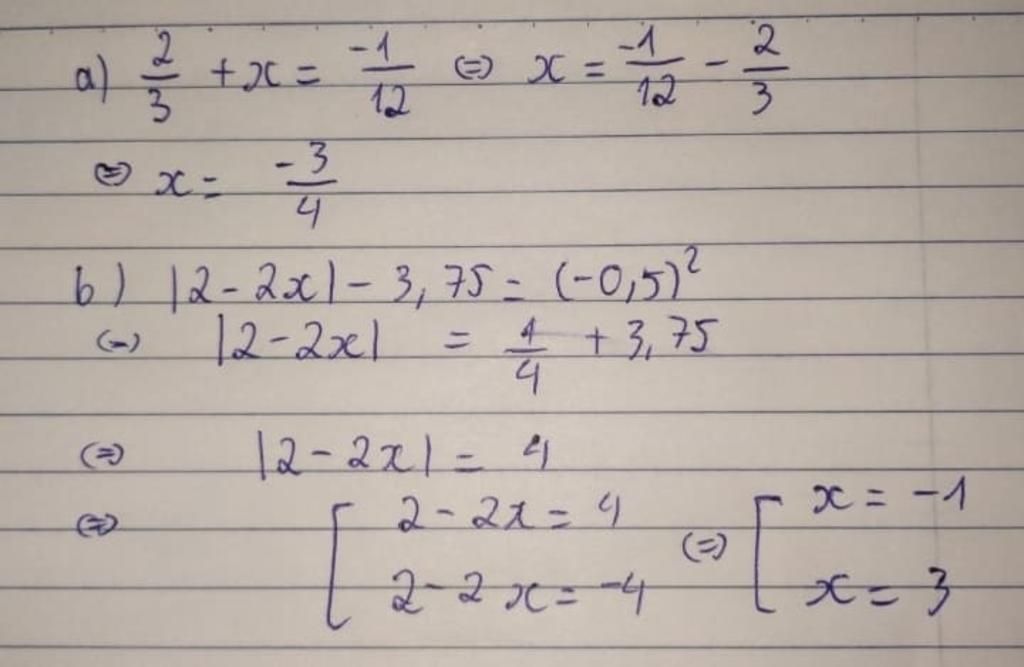 a) 2/3 + x = -1/12 ⇔ x = -1/12 - 2/3
⇔ x = -3/4
b) |2 - 2x| - 3,75 = (-0,5)²
⇔ |2 - 2x| = 1/4 + 3,75
⇔ |2 - 2x| = 4
⇔ [ 2 - 2x = 4 ⇔ [ x = -1
2 - 2x = -4 x = 3